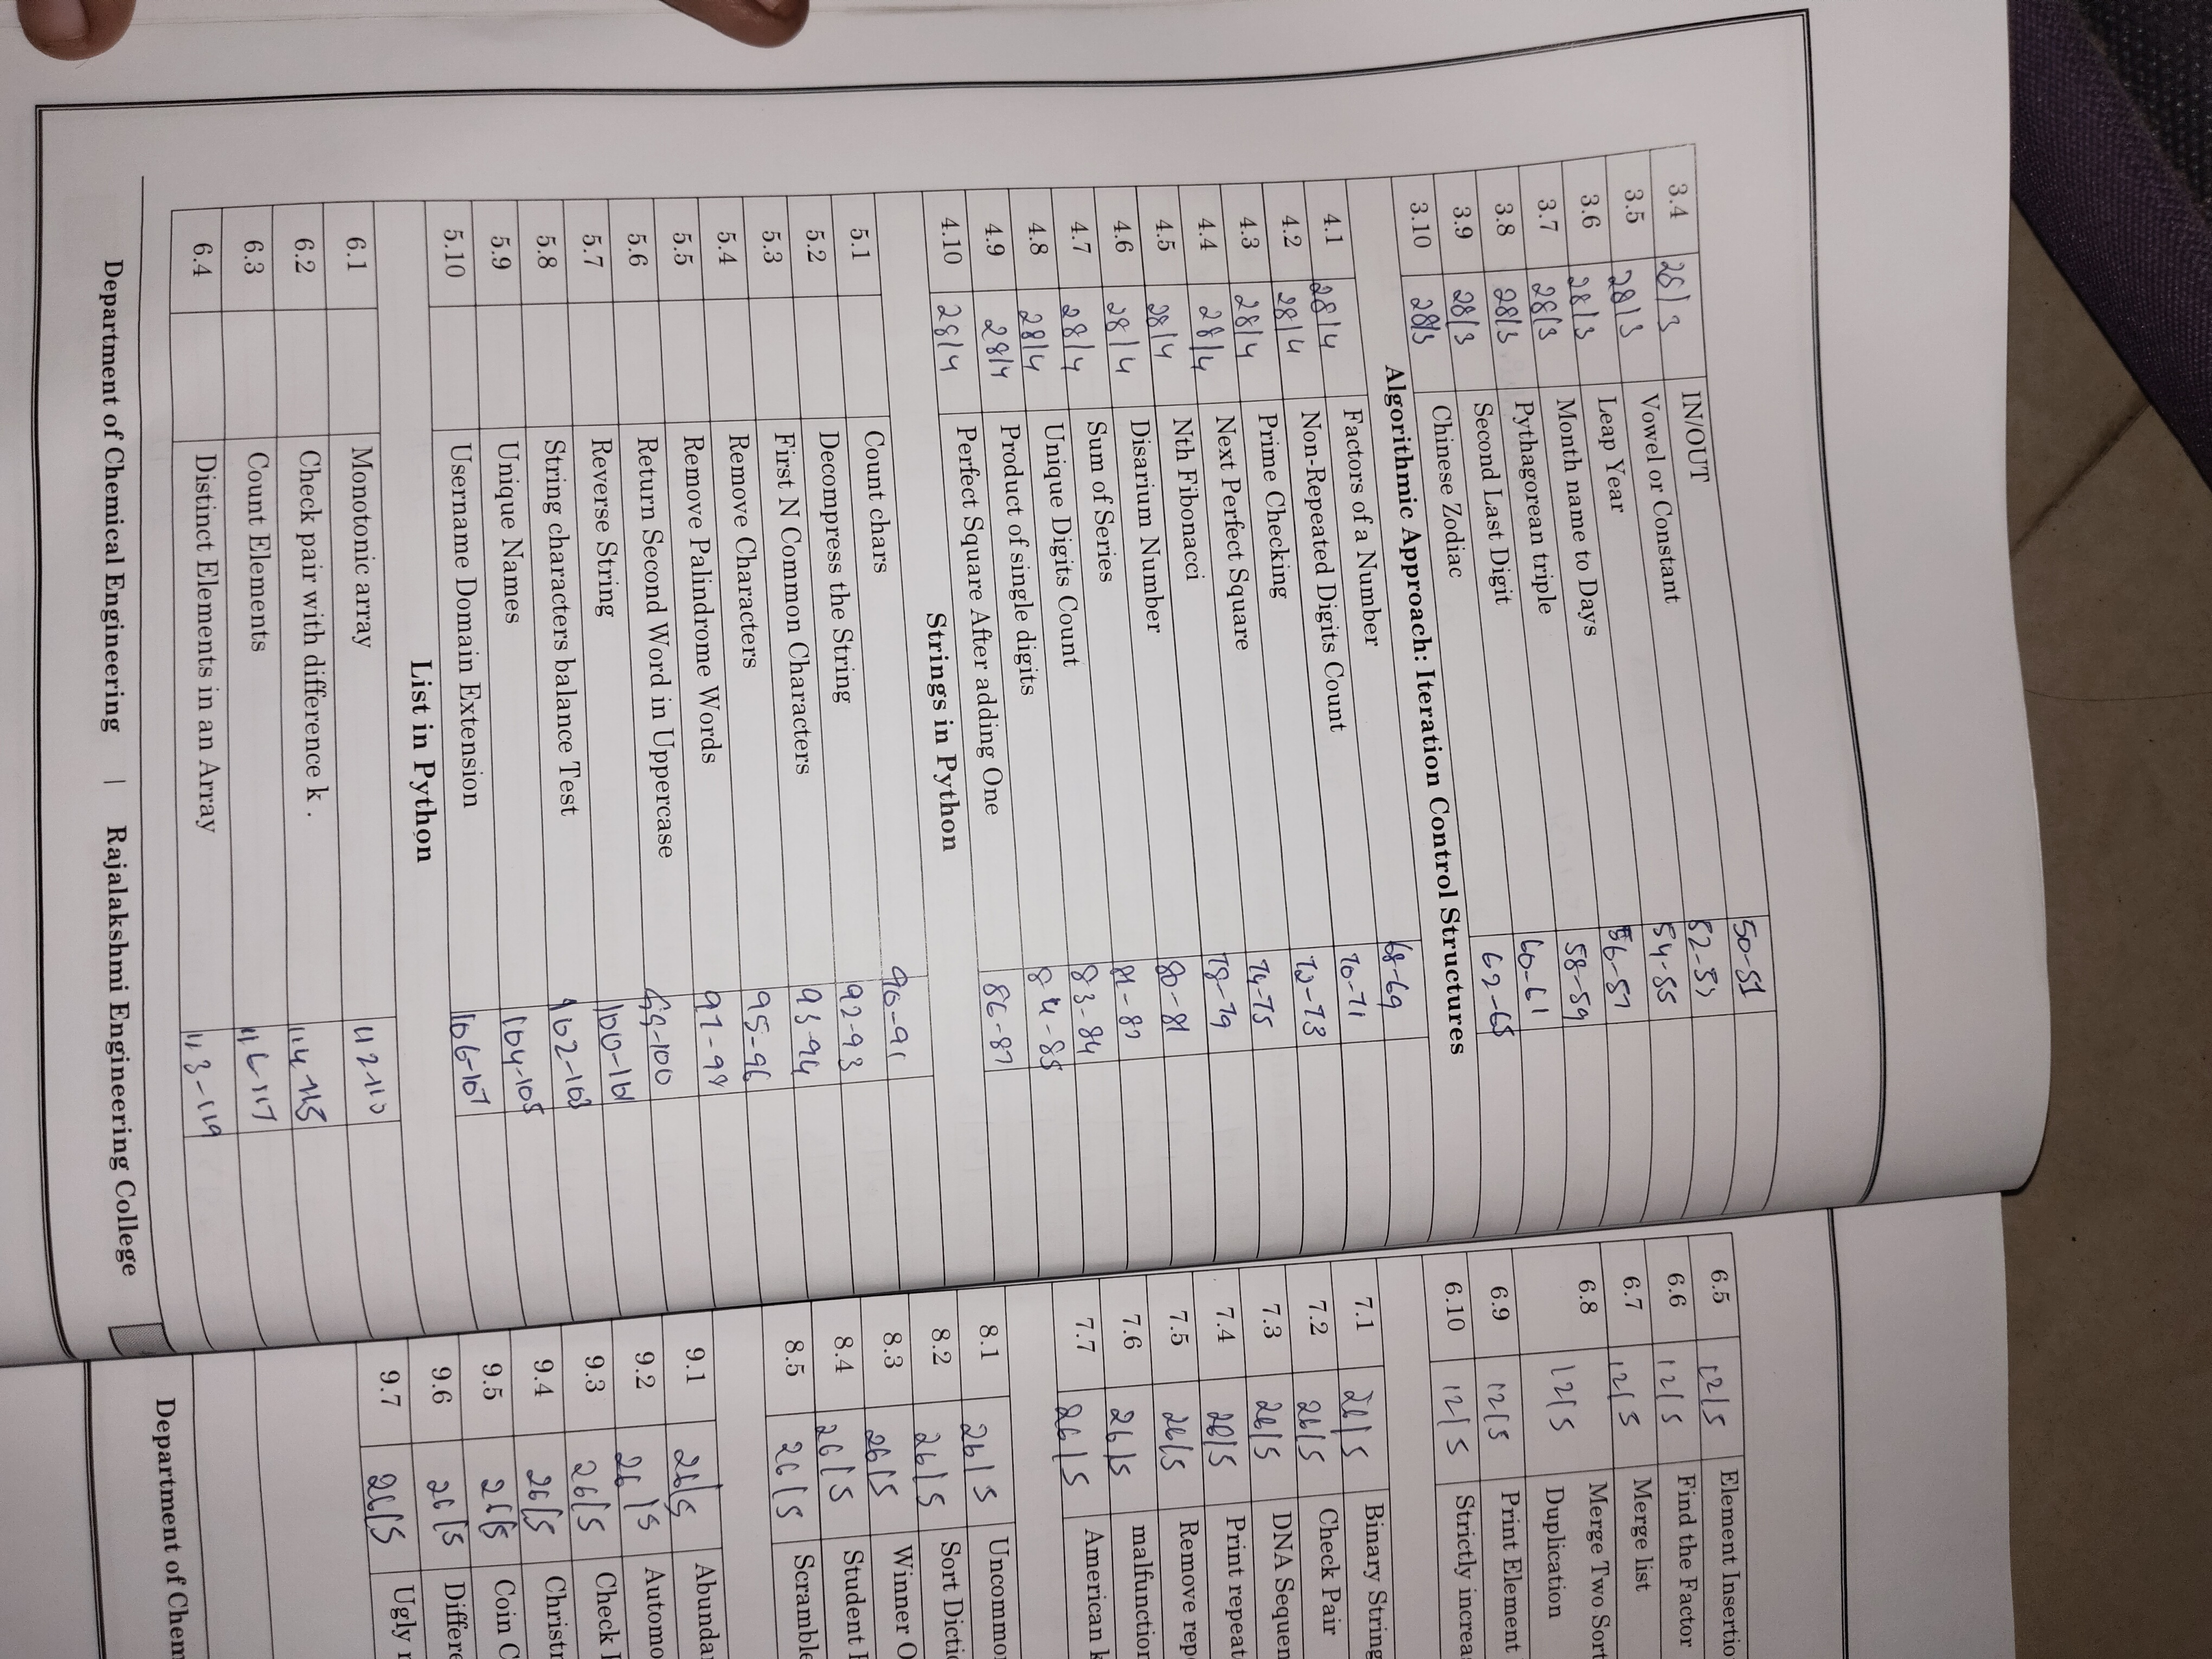 3.4 28/3 IN/OUT 50-51
3.5 28/3 Vowel or Constant 52-53
3.6 28/3 Leap Year 54-55
3.7 28/3 Month name to Days 56-57
3.8 28/3 Pythagorean triple 58-59
3.9 28/3 Second Last Digit 60-61
3.10 28/3 Chinese Zodiac
Algorithmic Approach: Iteration Control Structures
4.1 28/4 Factors of a Number 68-69
4.2 28/4 Non-Repeated Digits Count 70-71
4.3 28/4 Prime Checking 72-73
4.4 28/4 Next Perfect Square 74-75
4.5 28/4 Nth Fibonacci 78-79
4.6 28/4 Disarium Number 80-81
4.7 28/4 Sum of Series
4.8 28/4 Unique Digits Count 83-84
4.9 28/4 Product of single digits 84-85
4.10 28/4 Perfect Square After adding One 86-87
Strings in Python
5.1 Count chars 90-91
5.2 Decompress the String 92-93
5.3 First N Common Characters 93-94
5.4 Remove Characters 95-96
5.5 Remove Palindrome Words 97-98
5.6 Return Second Word in Uppercase 99-100
5.7 Reverse String 100-101
5.8 String characters balance Test 102-103
5.9 Unique Names 104-105
5.10 Username Domain Extension 106-107
List in Python
6.1 Monotonic array
6.2 Check pair with difference k .
6.3 Count Elements 116-117
6.4 Distinct Elements in an Array 113-119
Department of Chemical Engineering | Rajalakshmi Engineering College
6.5 12/5 Element Insertio
6.6 12/5 Find the Factor
6.7 12/5 Merge list
6.8 12/5 Merge Two Sort
Duplication
6.9 12/5 Print Element
6.10 12/5 Strictly increa
7.1 26/5 Binary String
7.2 26/5 Check Pair
7.3 26/5 DNA Sequen
7.4 26/5 Print repeat
7.5 26/5 Remove rep
7.6 26/5 malfunction
7.7 26/5 American k
8.1 26/5 Uncommo
8.2 26/5 Sort Dictio
8.3 26/5 Winner O
8.4 26/5 Student
8.5 26/5 Scramble
9.1 26/5 Abunda
9.2 26/5 Automo
9.3 26/5 Check
9.4 26/5 Christ
9.5 26/5 Coin C
9.6 26/5 Differe
9.7 26/5 Ugly
Department of Chem